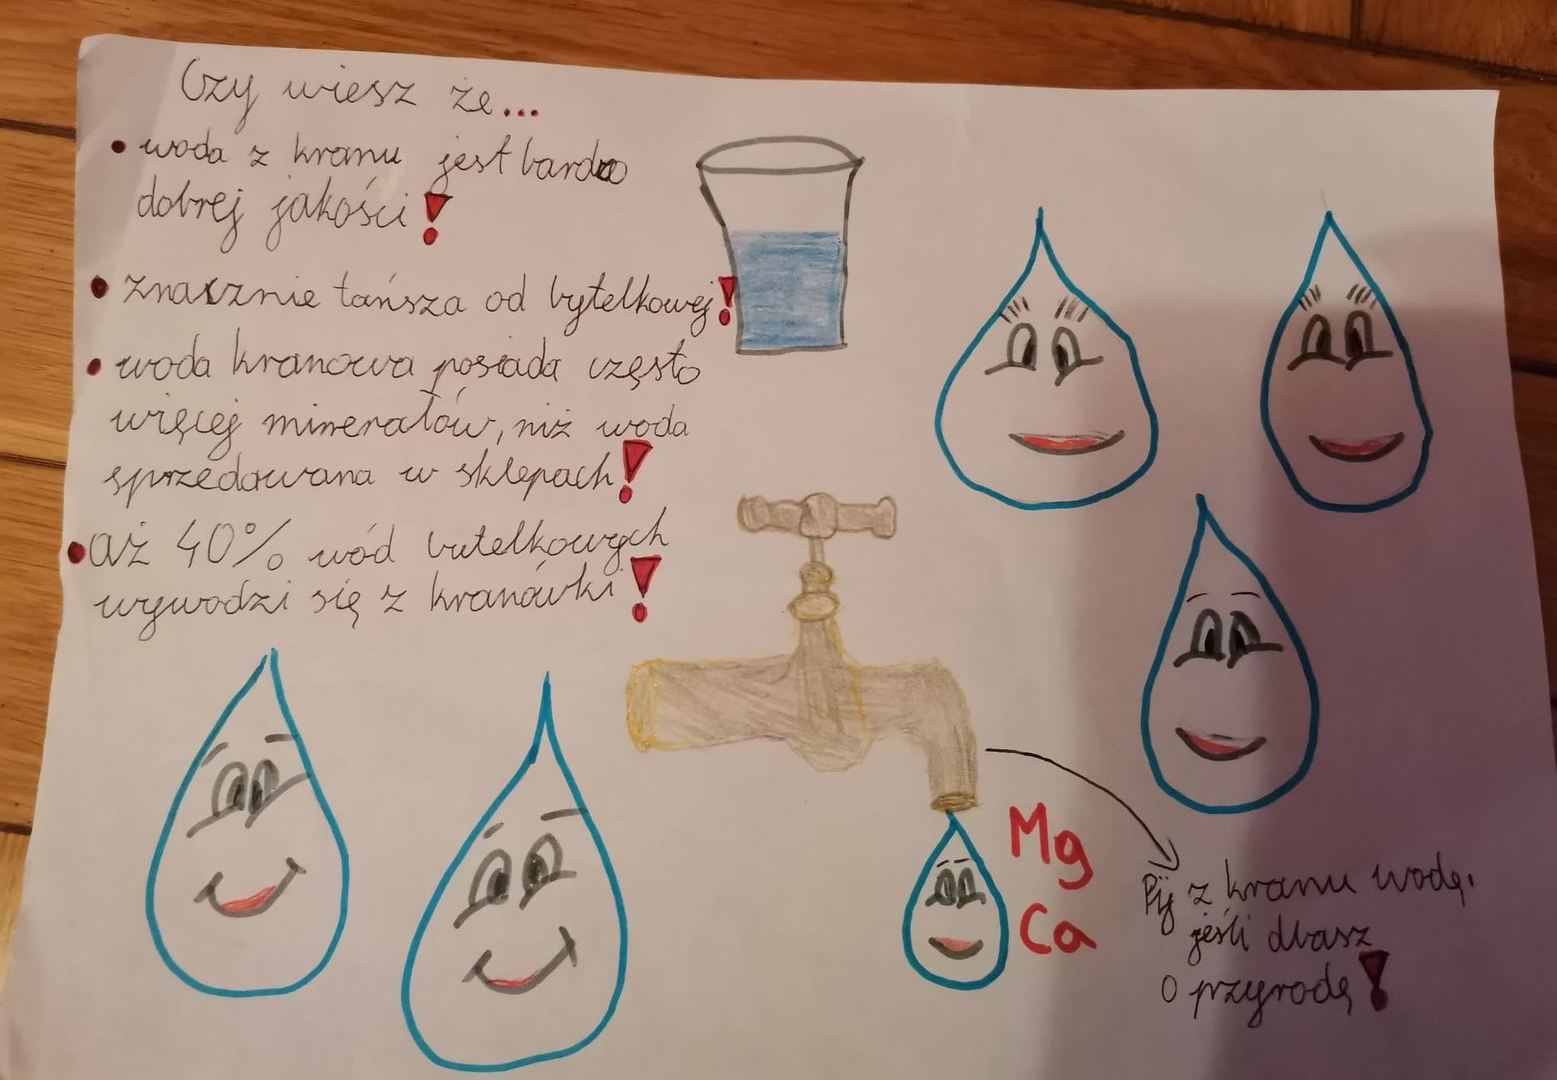 Czy wiesz że...
• woda z kranu jest bardzo
dobrej jakości!
• znacznie tańsza od bytelkowej!
• woda kranowa posiada często
więcej minerałów, niż woda
sprzedawana w sklepach!
• aż 40% wód butelkowych
wywodzi się z kranówki!
Mg
Ca
Pij z kranu wodę,
jeśli dbasz
o przyrodę!